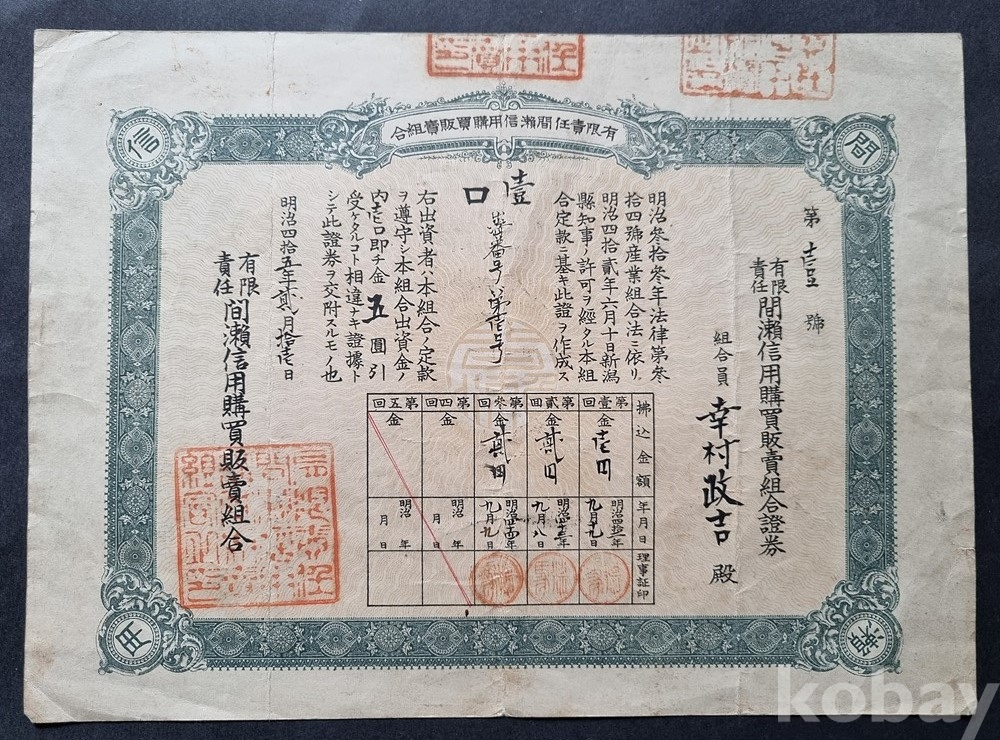 有限責任間瀬信用購買販賣組合
間
信
瀬
用
有限責任間瀬信用購買販賣組合證券
第壹號
組合員 幸村政吉 殿
壹口
明治參拾參年法律第參
拾四號産業組合法ニ依リ
明治四拾貳年六月十日新潟
縣知事ノ許可ヲ經タル本組
合定款ニ基キ此證ヲ作成ス
番号
第壱号
右出資者ハ本組合ノ定款
ヲ遵守シ本組合出資金ノ
内壱口即チ金五圓引
受ケタルコト相違ナキ證據ト
シテ此證券ヲ交附スルモノ也
明治四拾五年貳月拾壱日
有限責任間瀬信用購買販賣組合
拂込金額 年月日 理事証印
第壹回 金壱円 明治四拾二年九月十九日
第貳回 金貳円 明治四十三年九月八日
第參回 金貳円 明治四十四年九月九日
第四回 金 明治 年 月 日
第五回 金 明治 年 月 日
kobay